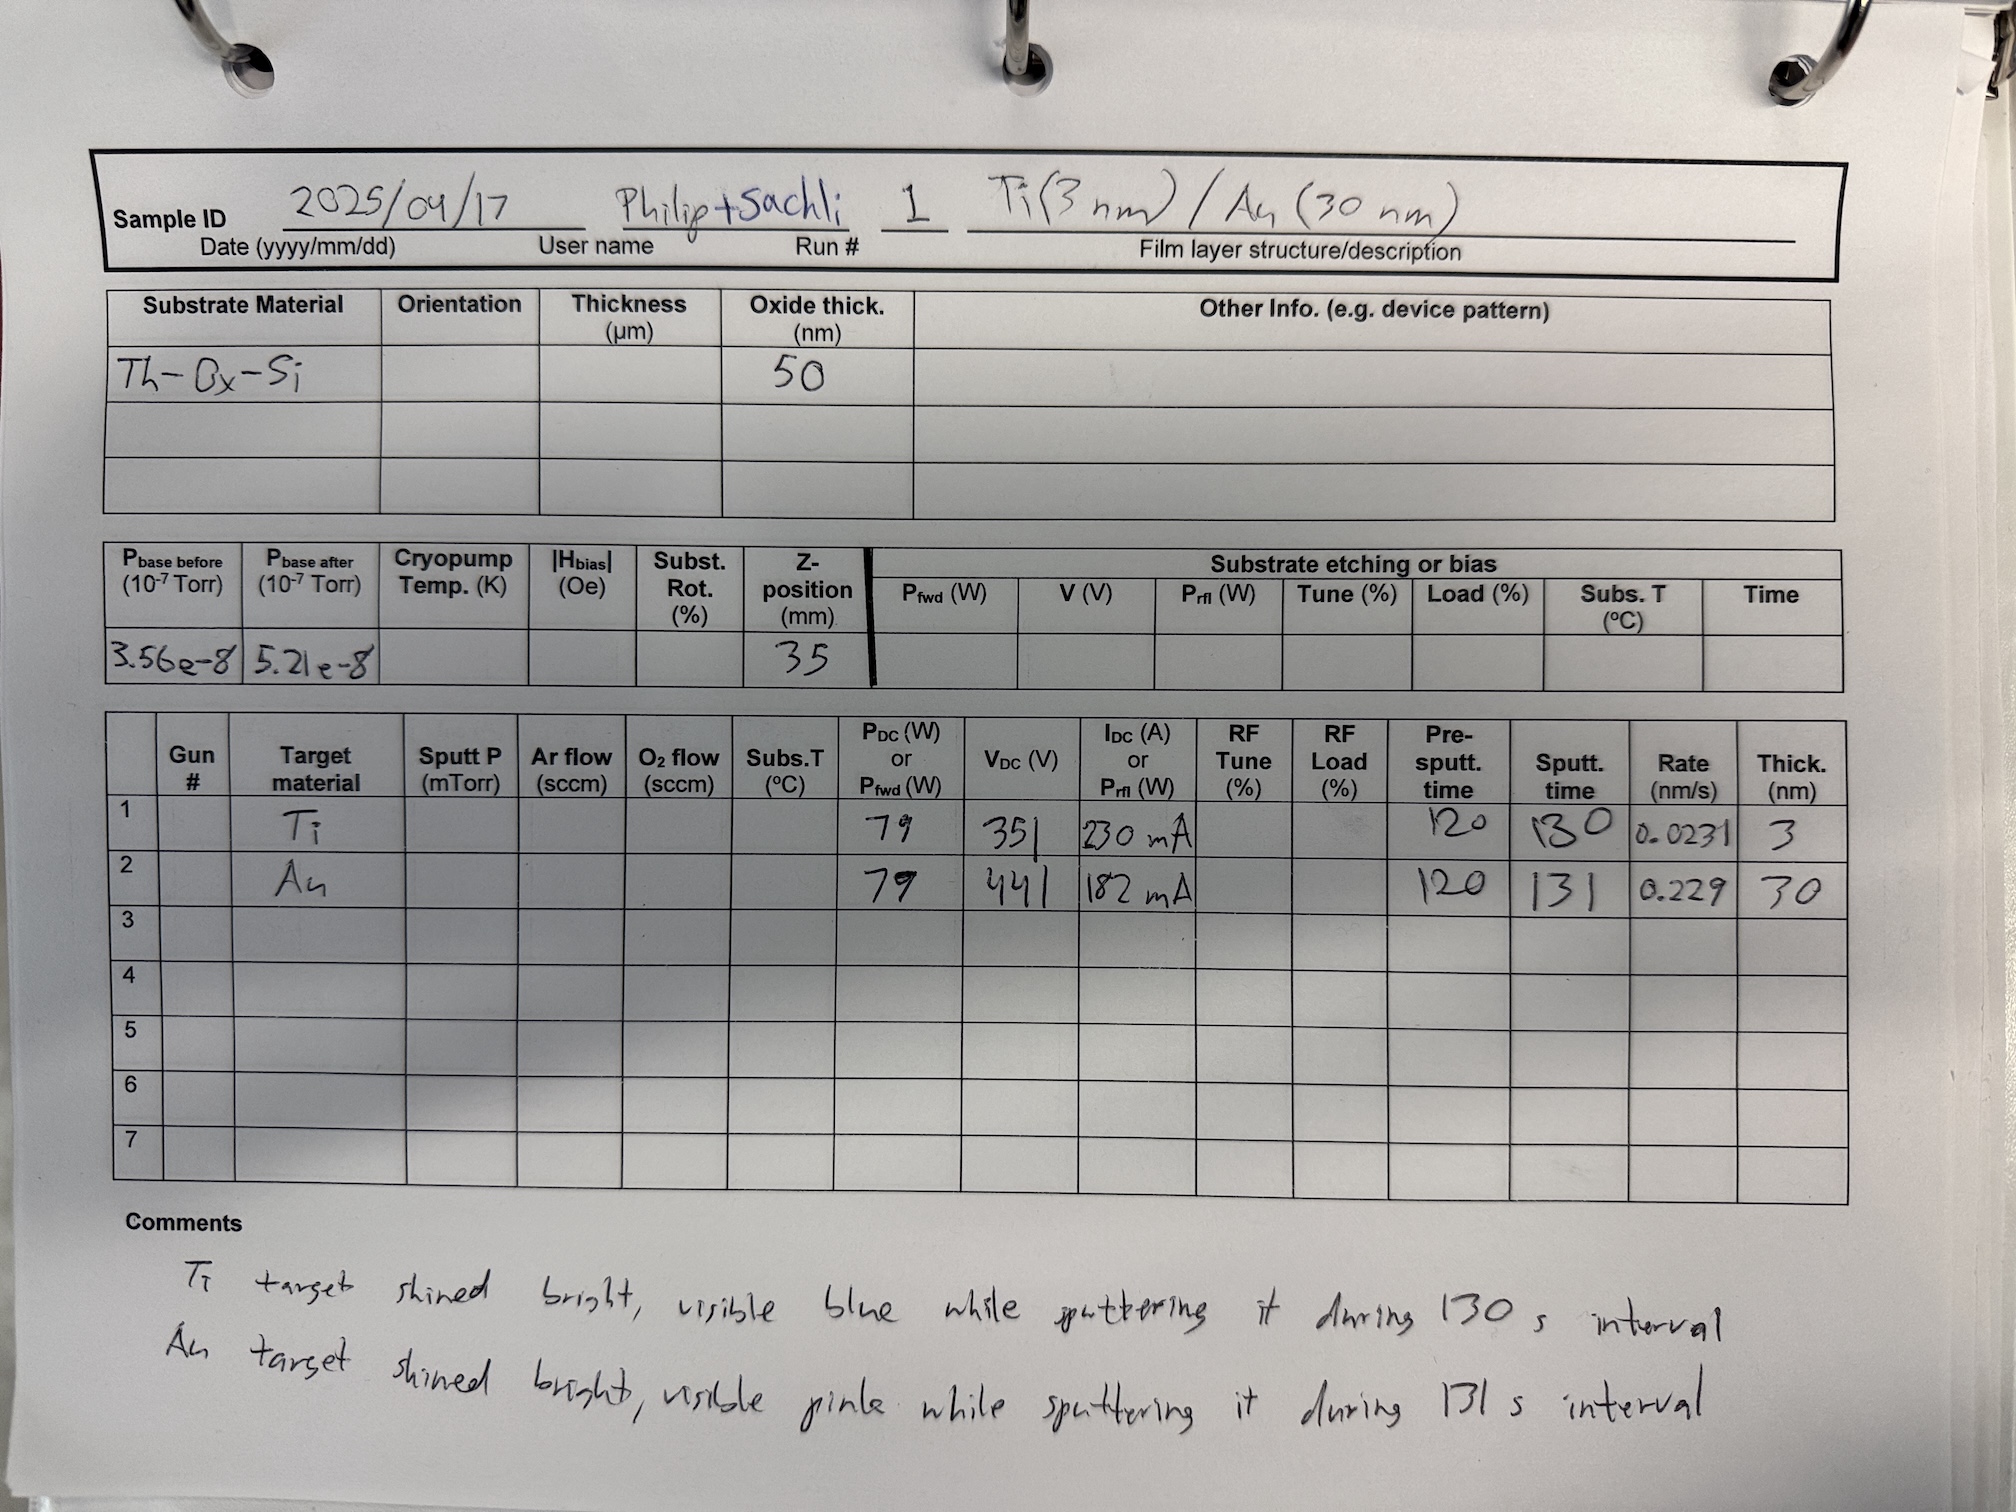 Sample ID 2025/04/17 Philip+Sachli 1 Ti(3 nm) / Au (30 nm)
Date (yyyy/mm/dd) User name Run # Film layer structure/description
Substrate Material Orientation Thickness (μm) Oxide thick. (nm) Other Info. (e.g. device pattern)
Th-Ox-Si 50
Pbase before (10-7 Torr) Pbase after (10-7 Torr) Cryopump Temp. (K) |Hbias| (Oe) Subst. Rot. (%) Z-position (mm) Substrate etching or bias
Pfwd (W) V (V) Prfl (W) Tune (%) Load (%) Subs. T (ºC) Time
3.56e-8 5.21e-8 35
Gun # Target material Sputt P (mTorr) Ar flow (sccm) O2 flow (sccm) Subs.T (ºC) PDC (W) or Pfwd (W) VDC (V) IDC (A) or Prfl (W) RF Tune (%) RF Load (%) Pre-sputt. time Sputt. time Rate (nm/s) Thick. (nm)
1 Ti 79 351 230 mA 120 130 0.0231 3
2 Au 79 441 182 mA 120 131 0.229 30
3
4
5
6
7
Comments
Ti target shined bright, visible blue while sputtering it during 130 s interval
Au target shined bright, visible pink while sputtering it during 131 s interval